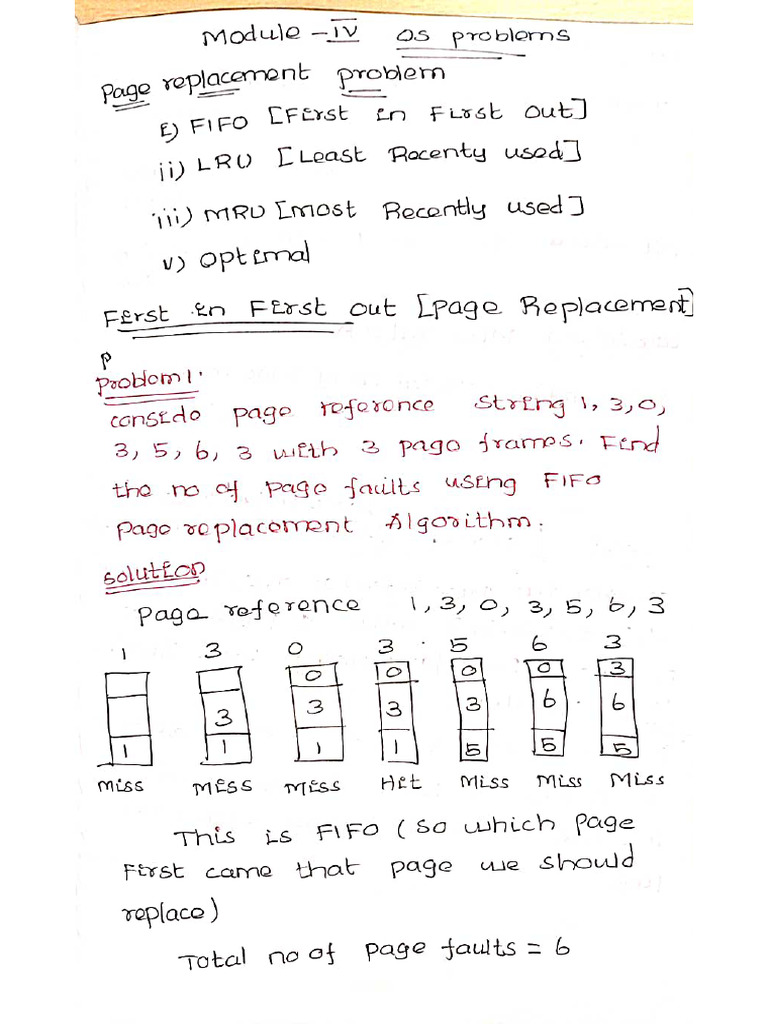 Module - IV OS problems
Page replacement problem
i) FIFO [First in First Out]
ii) LRU [Least Recenty used]
iii) MRU [Most Recently used]
v) optimal
First in First out [page Replacement]
p
Problem 1.
conside page reference string 1, 3, 0,
3, 5, 6, 3 with 3 page frames. Find
the no of page faults using FIFO
Page replacement Algorithm.
solution
page reference 1, 3, 0, 3, 5, 6, 3
1 3 0 3 5 6 3
0 0 0 0 3
3 3 3 3 6 6
1 1 1 1 5 5 5
Miss Miss Miss Hit Miss Miss Miss
This is FIFO (so which page
First came that page we should
replace)
Total no of page faults = 6